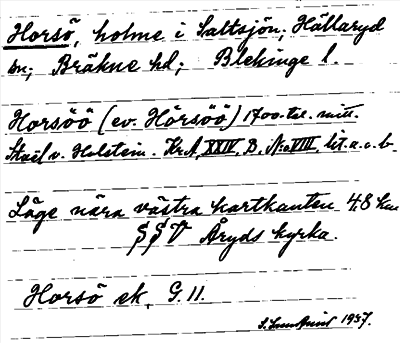 Horsö, holme i Saltsjön; Hällaryd
sn; Bräkne hd; Blekinge l.
Horsöö (ev. Hörsöö) 1700-tal. mitt.
Staël v. Holstein. Kr.A, XXIV, B, No VIII, lit. a. o. b.
Läge nära västra kartkanten 4,8 km
SSV Åryds kyrka.
Horsö ek. G. 11.
1937.